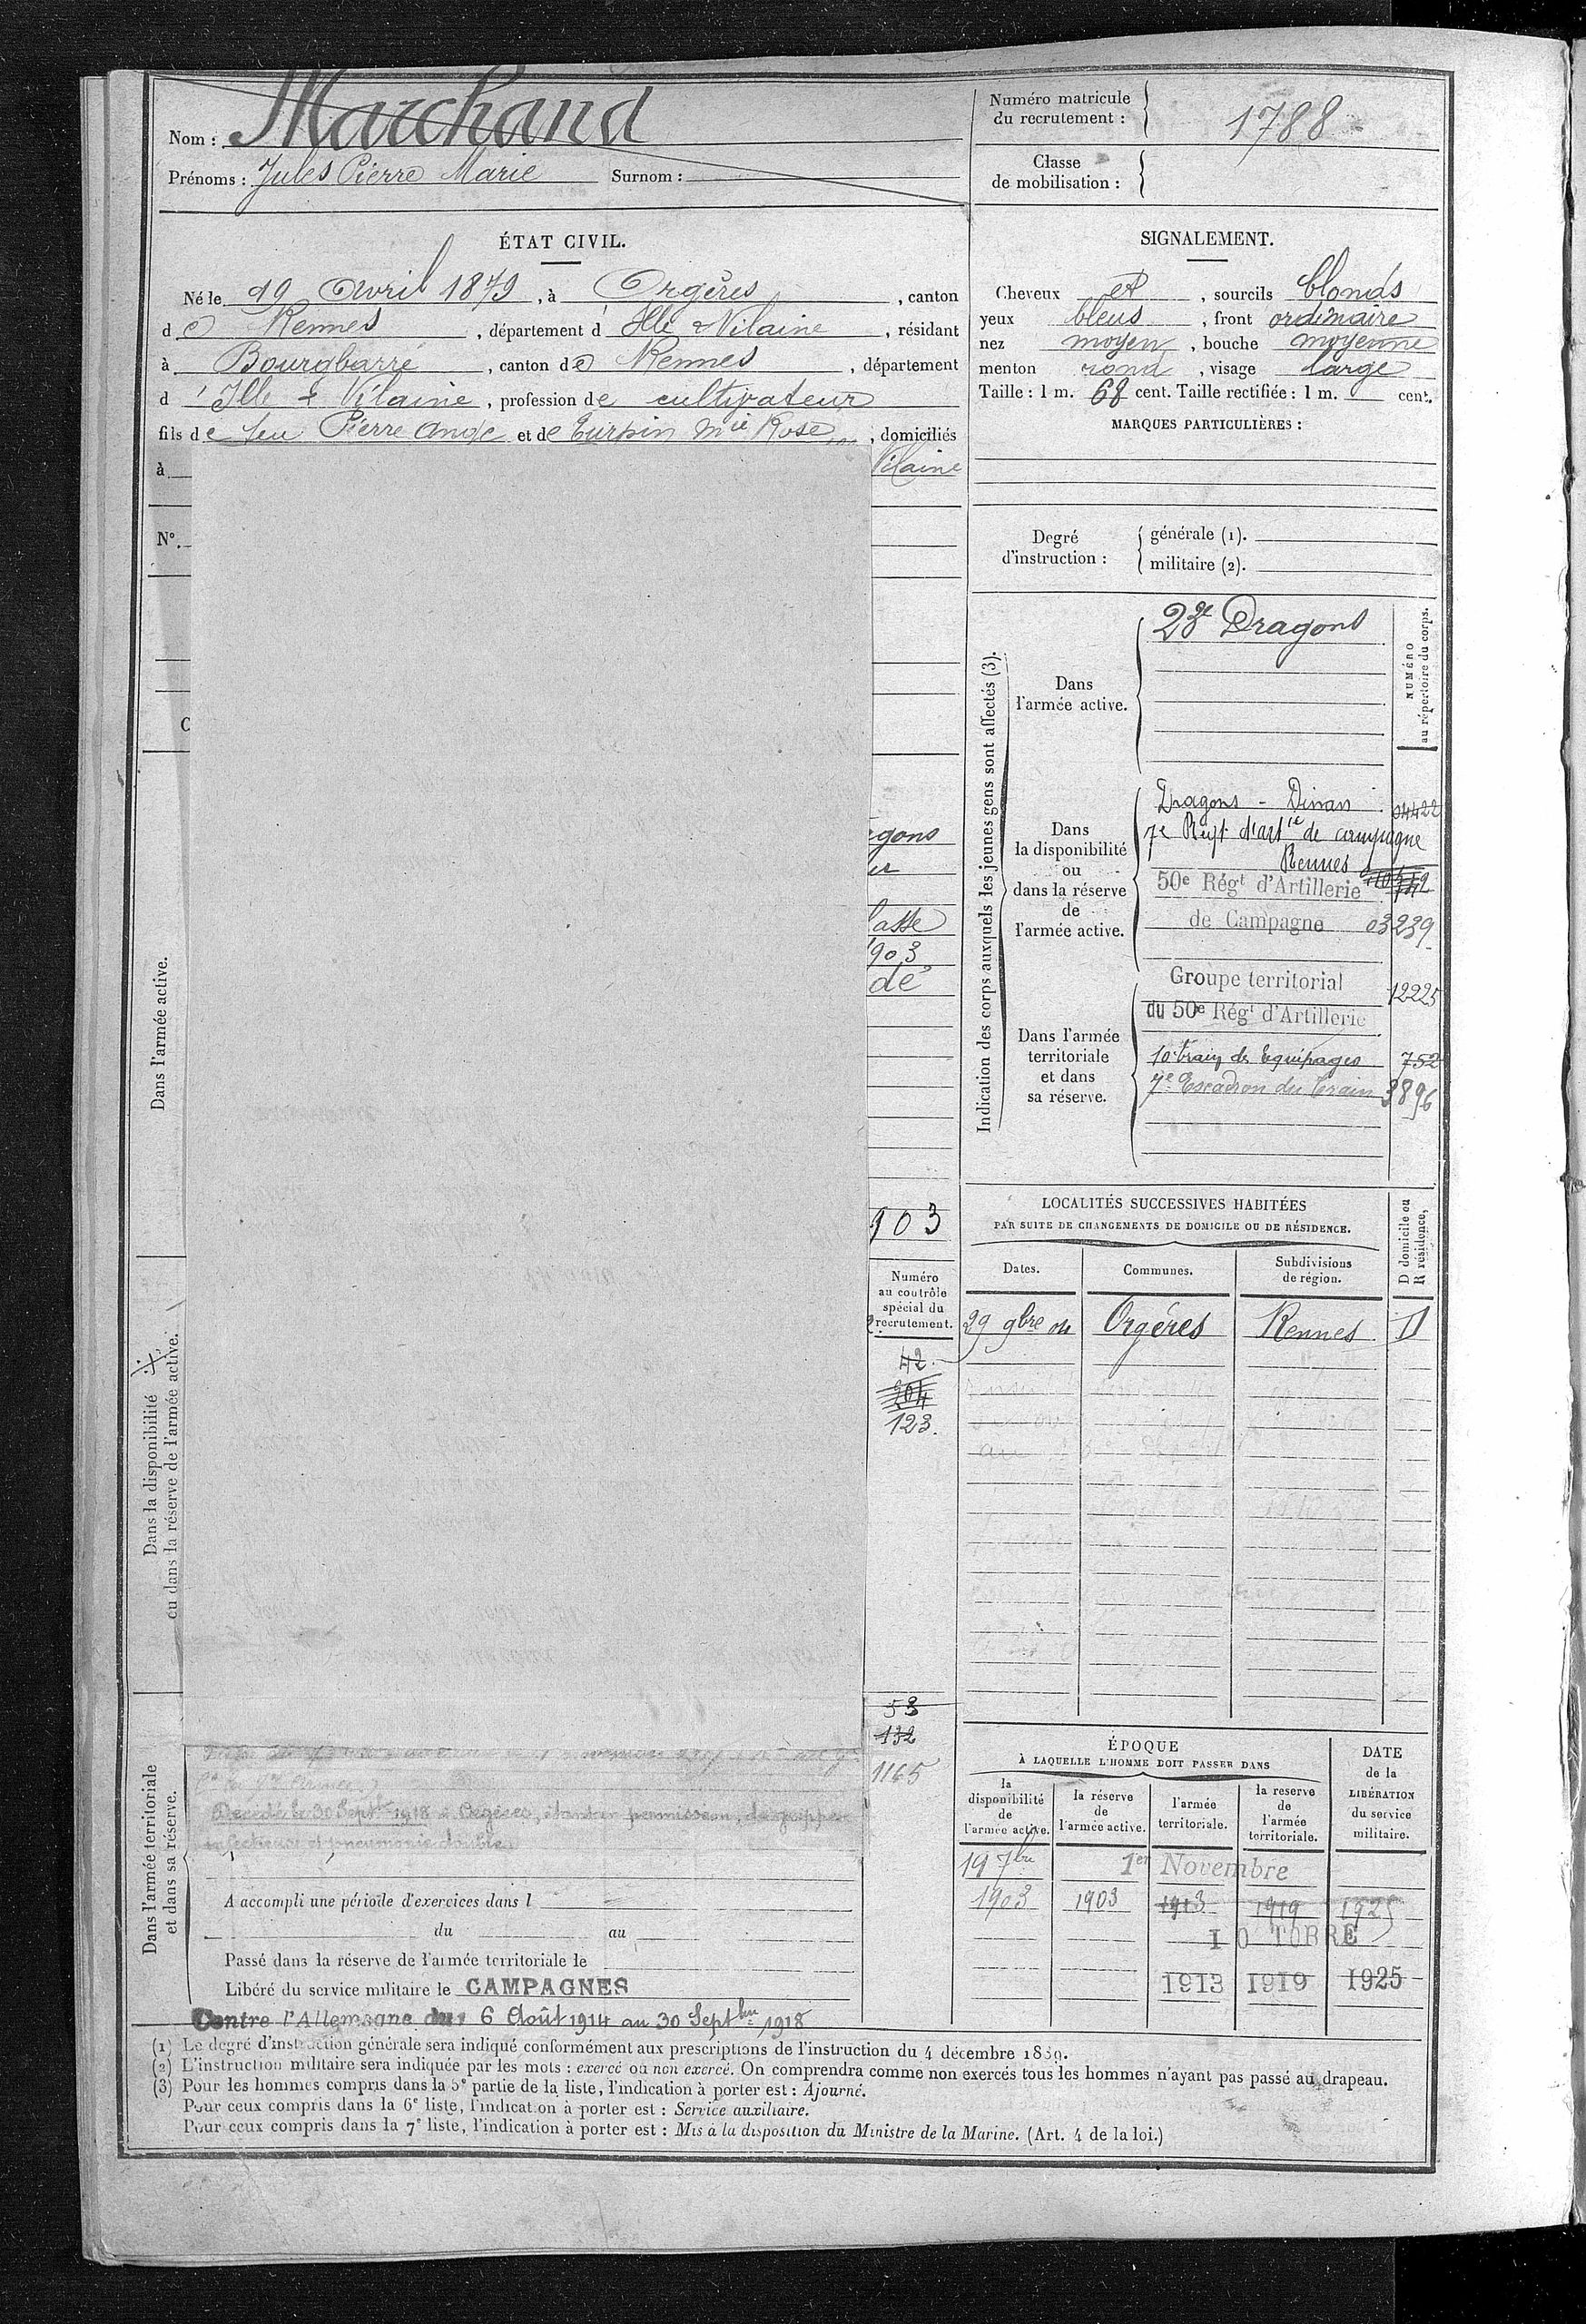 Nom : Marchand
Prénoms : Jules Pierre Marie Surnom :
Numéro matricule
du recrutement : 1788
Classe
de mobilisation :
ÉTAT CIVIL.
Né le 19 Avril 1879, à Orgères, canton
de Rennes, département d'Ille & Vilaine, résidant
à Bourgbarré, canton de Rennes, département
d'Ille & Vilaine, profession de cultivateur
fils de feu Pierre Ange et de Turpin Mie Rose, domiciliés
à Vilaine
N°.
C
Dans l'armée active.
gons
er
lasse
1903
de
903
Numéro
au contrôle
spécial du
recrutement.
42.
204
123.
Dans la disponibilité
ou dans la réserve de l'armée active.
53
132
1165
Dans l'armée territoriale
et dans sa réserve.
Décédé le 30 Septbre 1918 à Orgères, étant en permission, de grippe
infectieuse et pneumonie double
A accompli une période d'exercices dans l
du au
Passé dans la réserve de l'armée territoriale le
Libéré du service militaire le CAMPAGNES
Contre l'Allemagne du 6 Août 1914 au 30 Septbre 1918
SIGNALEMENT.
Cheveux et, sourcils blonds
yeux bleus, front ordinaire
nez moyen, bouche moyenne
menton rond, visage large
Taille : 1 m. 68 cent. Taille rectifiée : 1 m. cent.
MARQUES PARTICULIÈRES :
Degré
d'instruction :
générale (1).
militaire (2).
Indication des corps auxquels les jeunes gens sont affectés (3).
NUMÉRO
au répertoire du corps.
Dans
l'armée active.
28e Dragons
Dans
la disponibilité
ou
dans la réserve
de
l'armée active.
Dragons - Dinan 04422
7e Regt d'artie de campagne
Rennes
50e Régt d'Artillerie
de Campagne 03239
Dans l'armée
territoriale
et dans
sa réserve.
Groupe territorial 12225
du 50e Régt d'Artillerie
10e train des Equipages 752
7e Escadron du Train 3896
LOCALITÉS SUCCESSIVES HABITÉES
PAR SUITE DE CHANGEMENTS DE DOMICILE OU DE RÉSIDENCE.
D domicile ou
R résidence,
Dates. Communes. Subdivisions
de région.
29 9bre 04 Orgères Rennes D
ÉPOQUE
À LAQUELLE L'HOMME DOIT PASSER DANS
la
disponibilité
de
l'armée active.
la réserve
de
l'armée active.
l'armée
territoriale.
la reserve
de
l'armée
territoriale.
DATE
de la
LIBÉRATION
du service
militaire.
19 7bre 1er Novembre
1903 1903 1913 1919 1925
1 OCTOBRE
1913 1919 1925
(1) Le degré d'instruction générale sera indiqué conformément aux prescriptions de l'instruction du 4 décembre 1889.
(2) L'instruction militaire sera indiquée par les mots : exercé ou non exercé. On comprendra comme non exercés tous les hommes n'ayant pas passé au drapeau.
(3) Pour les hommes compris dans la 5e partie de la liste, l'indication à porter est : Ajourné.
Pour ceux compris dans la 6e liste, l'indication à porter est : Service auxiliaire.
Pour ceux compris dans la 7e liste, l'indication à porter est : Mis à la disposition du Ministre de la Marine. (Art. 4 de la loi.)